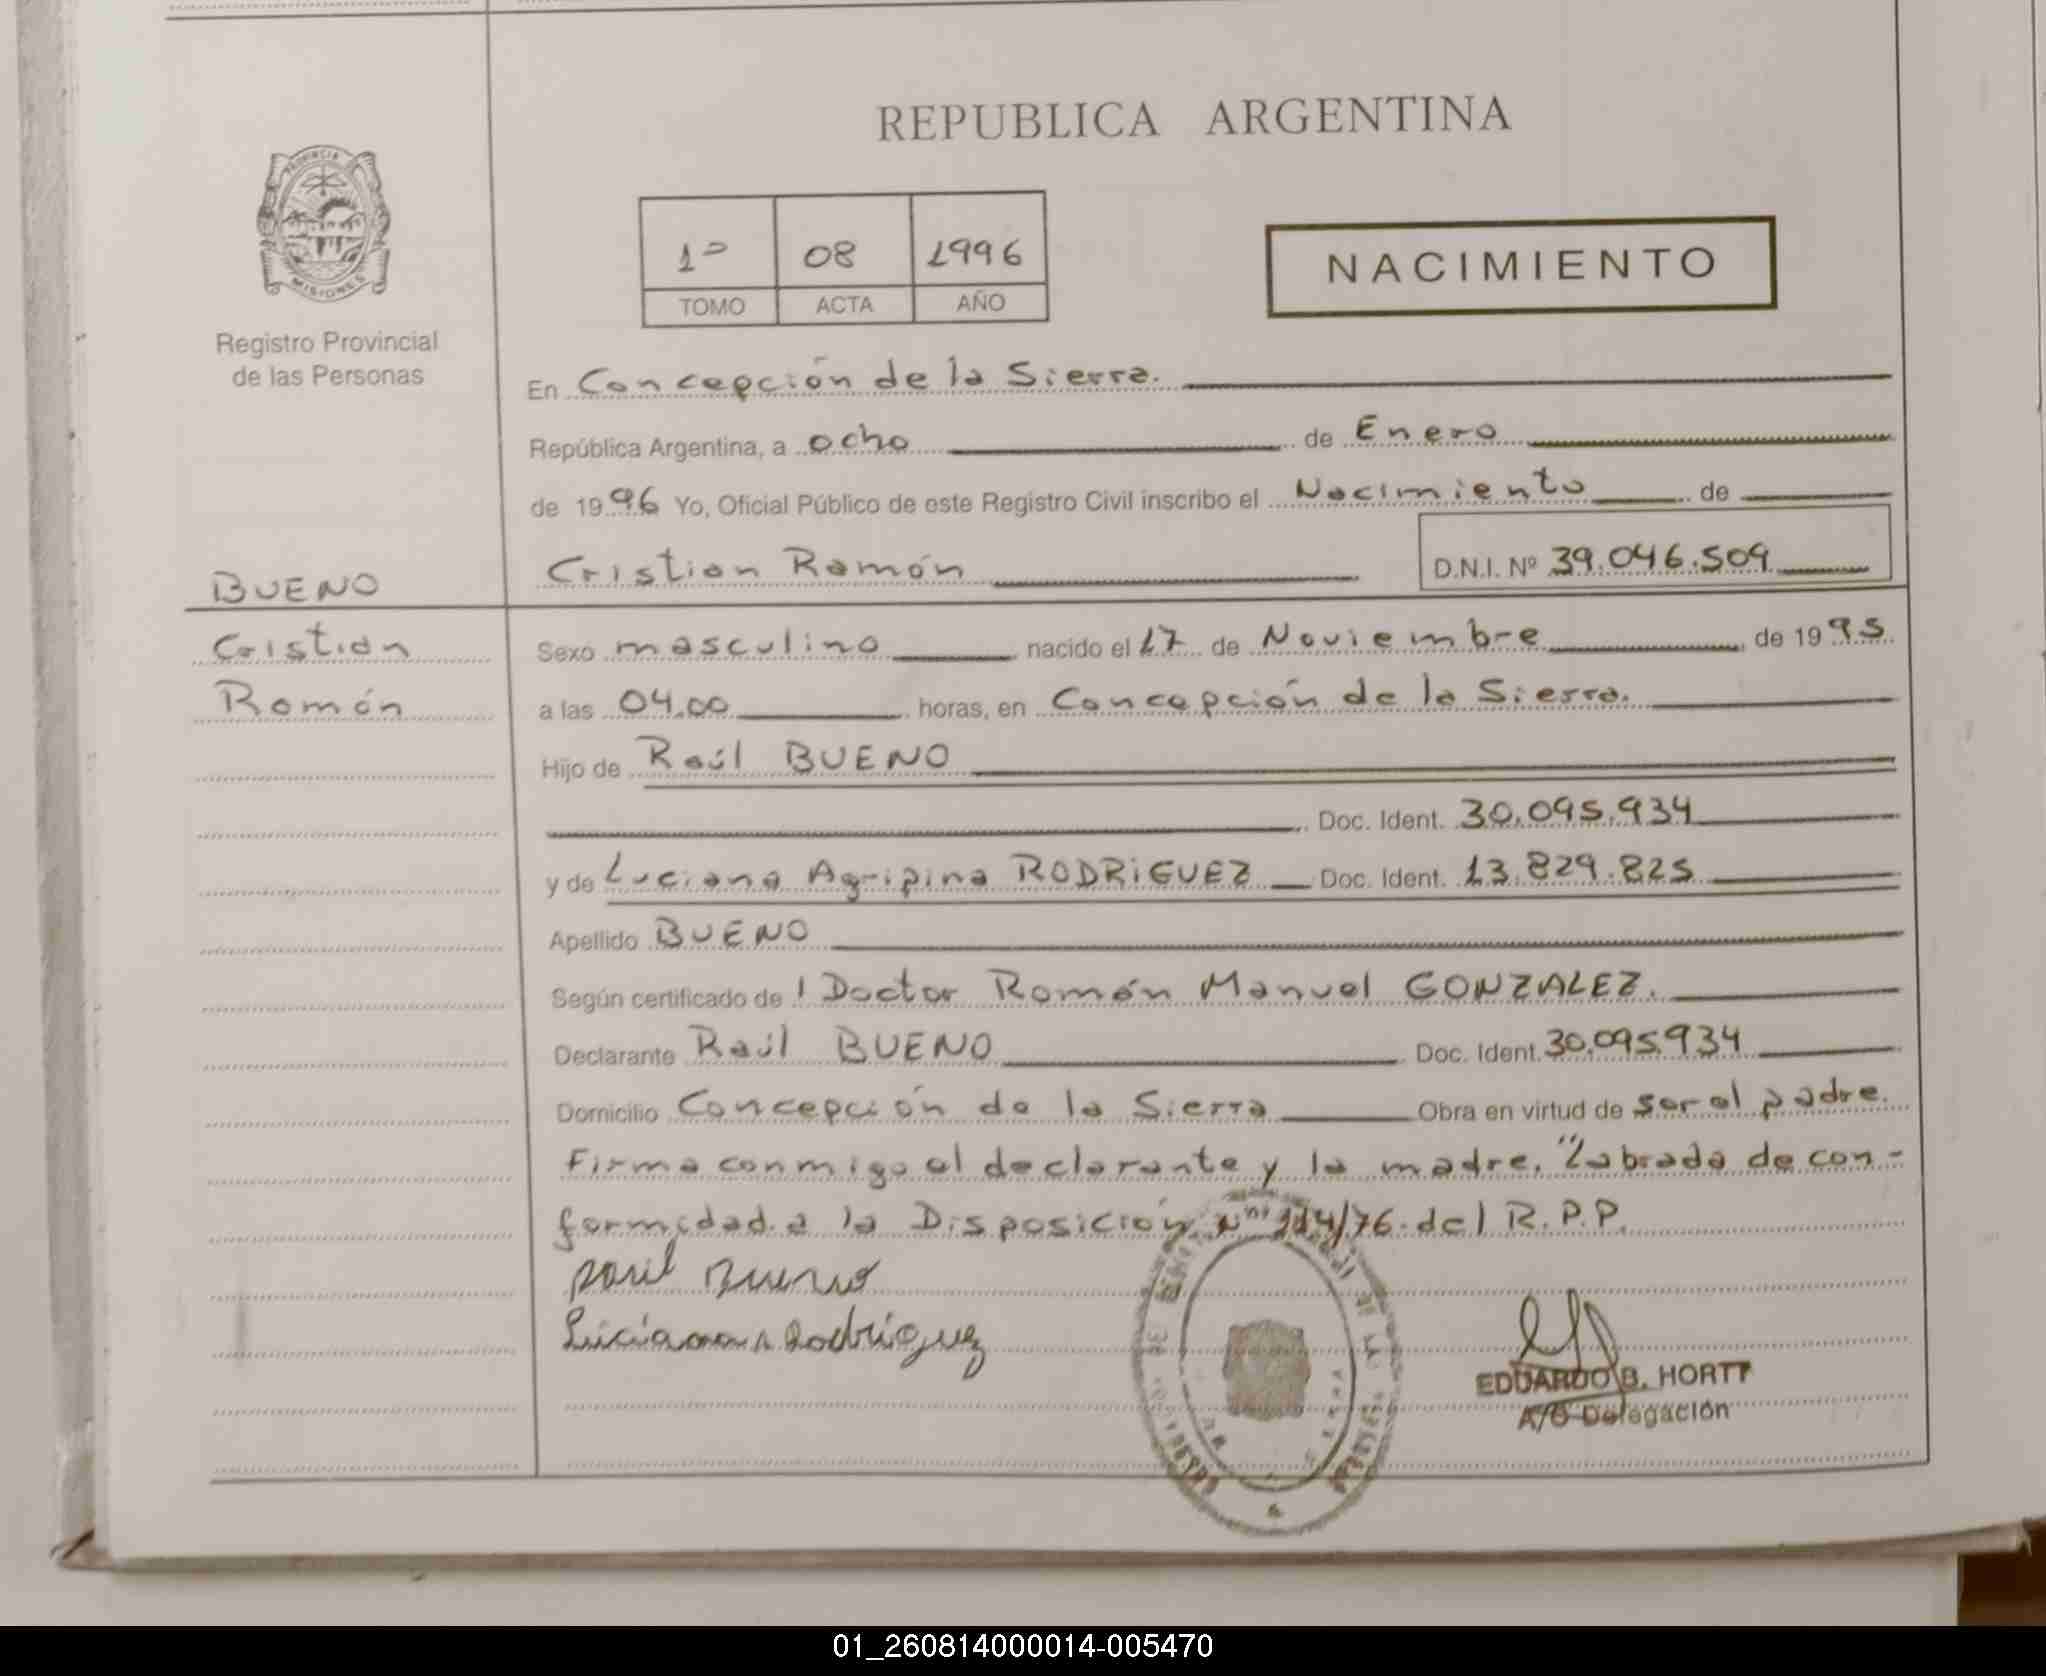 REPUBLICA ARGENTINA
PROVINCIA
MISIONES
Registro Provincial
de las Personas
1º 08 1996
TOMO ACTA AÑO
NACIMIENTO
En Concepción de la Sierra.
República Argentina, a ocho de Enero
de 1996 Yo, Oficial Público de este Registro Civil inscribo el Nacimiento de
Cristian Ramón D.N.I. Nº 39.046.509
BUENO
Cristian
Ramón
Sexo masculino nacido el 17 de Noviembre de 1995
a las 04.00 horas, en Concepción de la Sierra.
Hijo de Raúl BUENO
Doc. Ident. 30.095.934
y de Luciana Agripina RODRIGUEZ Doc. Ident. 13.829.825
Apellido BUENO
Según certificado de l Doctor Román Manuel GONZALEZ.
Declarante Raúl BUENO Doc. Ident. 30.095.934
Domicilio Concepción de la Sierra Obra en virtud de ser el padre.
Firma conmigo el declarante y la madre. "Labrada de con-
formidad a la Disposición Nº 114/76 del R.P.P.
Raul Bueno
Luciana Rodriguez
EDUARDO B. HORTT
A/C Delegación
01_260814000014-005470